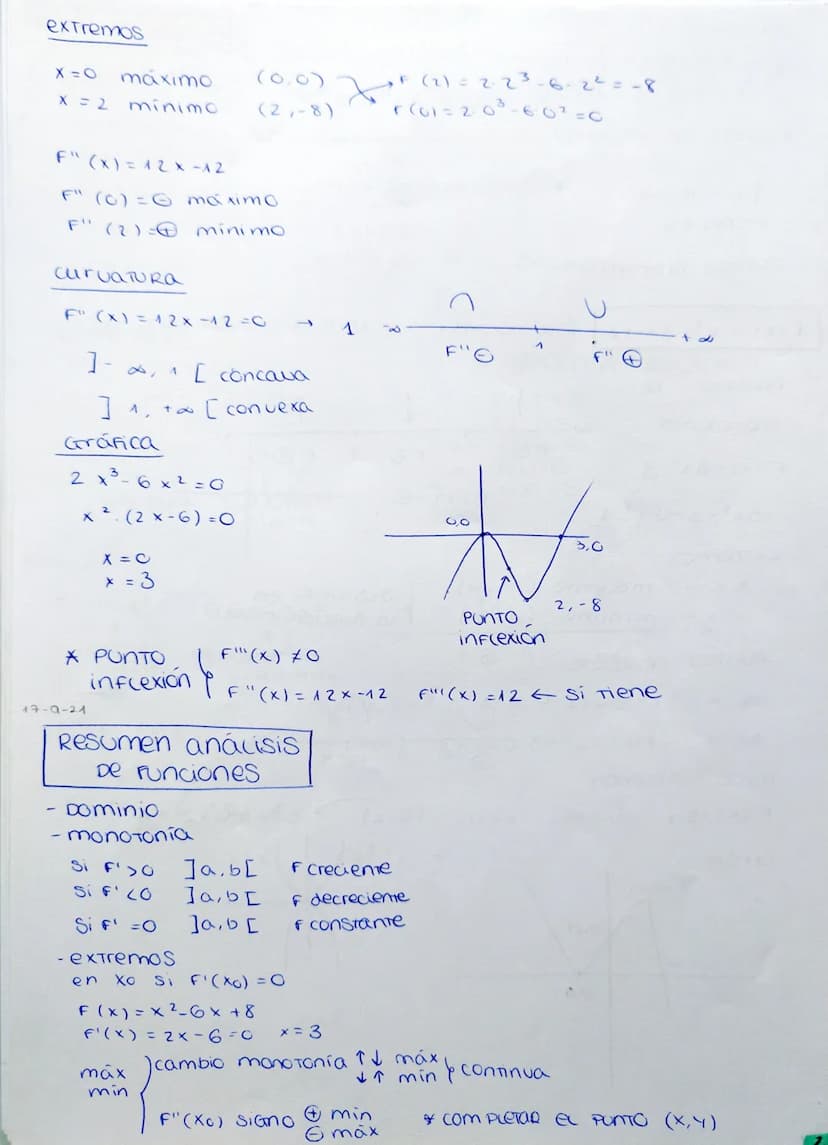 extremos
x=0 máximo (0,0) F(2) = 2·2³-6·2² = -8
x=2 mínimo (2,-8) F(0) = 2·0³-6·0² = 0
F''(x) = 12x-12
F''(0) = ⊖ máximo
F''(2) = ⊕ mínimo
curvatura
F''(x) = 12x-12=0 → 1
∩ ∪
-∞ 1 +∞
F''⊖ F''⊕
]-∞, 1[ cóncava
]1, +∞[ convexa
Gráfica
2x³-6x²=0
x²·(2x-6)=0
x=0
x=3
0,0
3,0
2,-8
PUNTO
inflexión
* PUNTO inflexión { F'''(x) ≠ 0
F''(x) = 12x-12 F'''(x) = 12 ← Sí tiene
17-9-21
Resumen análisis
de funciones
- Dominio
- monotonía
Si F'>0 ]a,b[ F creciente
Si F'<0 ]a,b[ F decreciente
Si F'=0 ]a,b[ F constante
- extremos
en x0 si F'(x0)=0
F(x) = x²-6x+8
F'(x) = 2x-6=0 x=3
máx
min
cambio monotonía ↑↓ máx
↓↑ min } continua
F''(x0) signo ⊕ min
⊖ máx
* completar el punto (x,y)